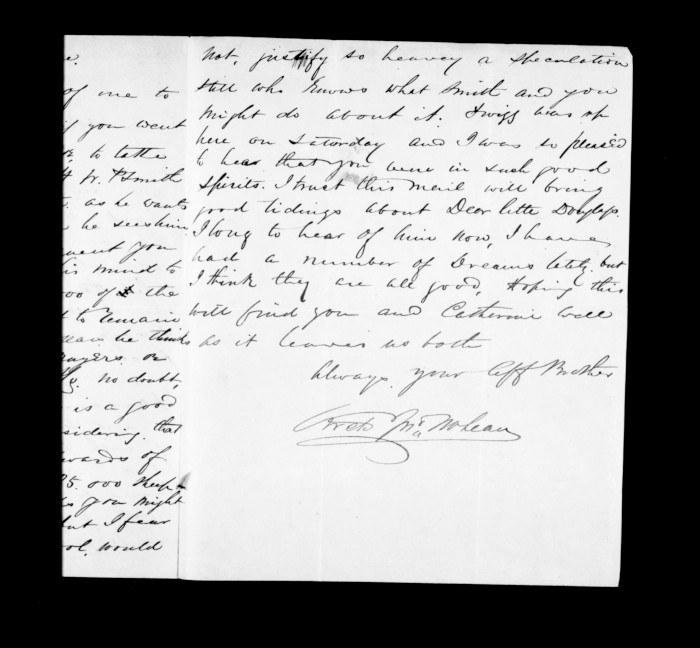 e.
of one to
if you went
to take
W. P Smith
as he wants
he sees him
ment you
his mind to
000 of the
t to remain
he thinks
prayers or
no doubt,
is a good
sidering that
wards of
25.000 sheep
you might
but I fear
ool, would
not, justify so heavey a speculation
still who knows what Smith and you
might do about it. Twigg was up
here on Saturday and I was so pleased
to hear that you were in such good
spirits. I trust this mail will bring
good tidings about Dear little Douglas.
I long to hear of him now, I have
had a number of Dreams lately. but
I think they are all good, Hoping this
will find you and Catherine well
as it leaves us both
always your aff Brother
McLean